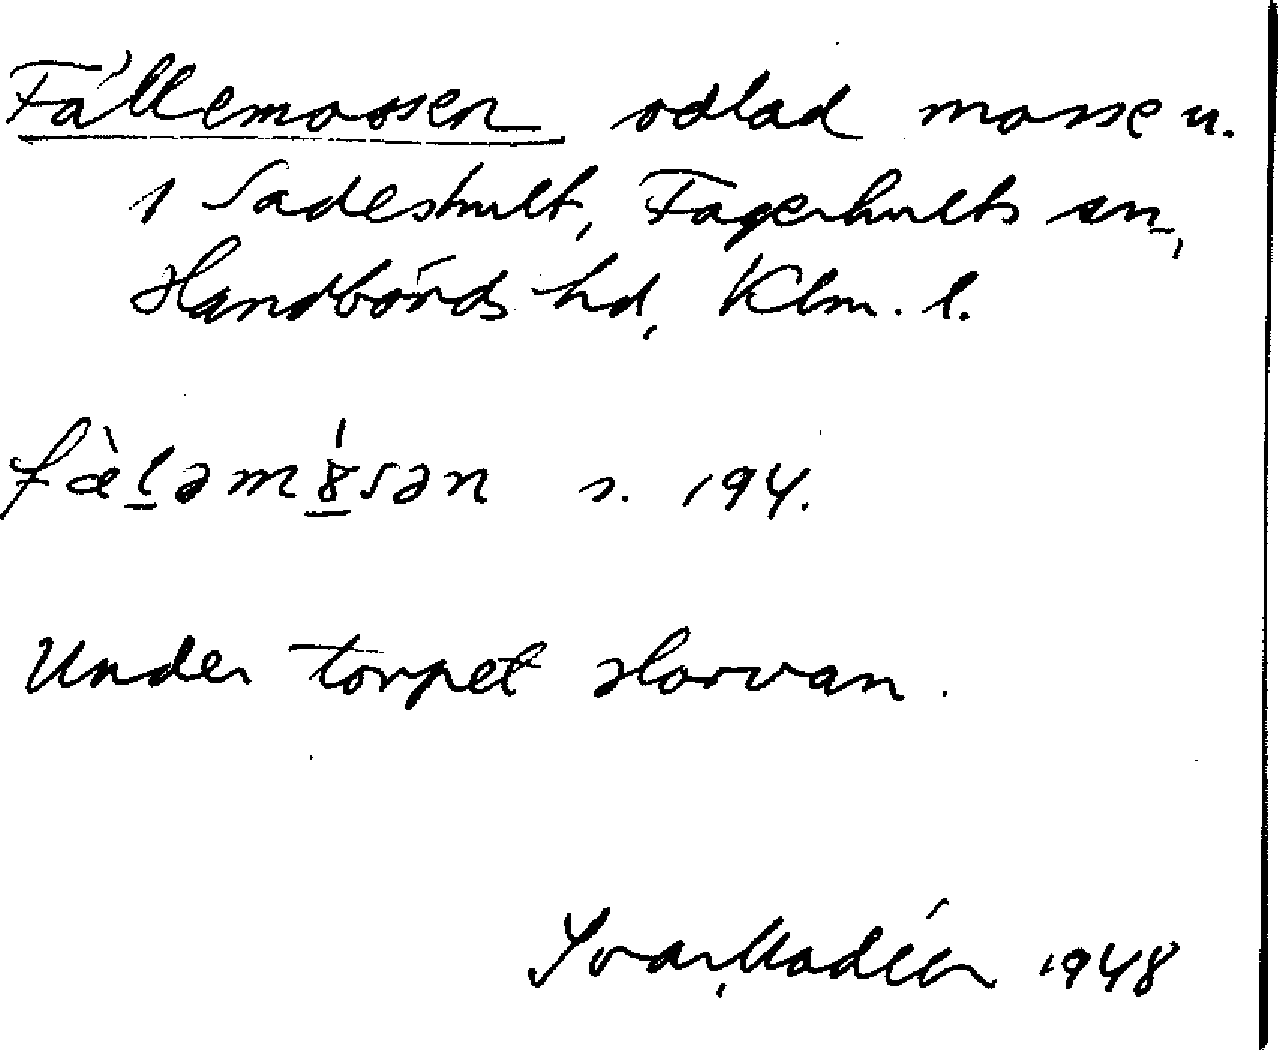 Fällemossen odlad mosse u.
1 Sadeshult, Fagerhults sn,
Handbörds hd, Klm. l.
s. 194.
Under torpet Horvan.
Ivar Modéer 1948